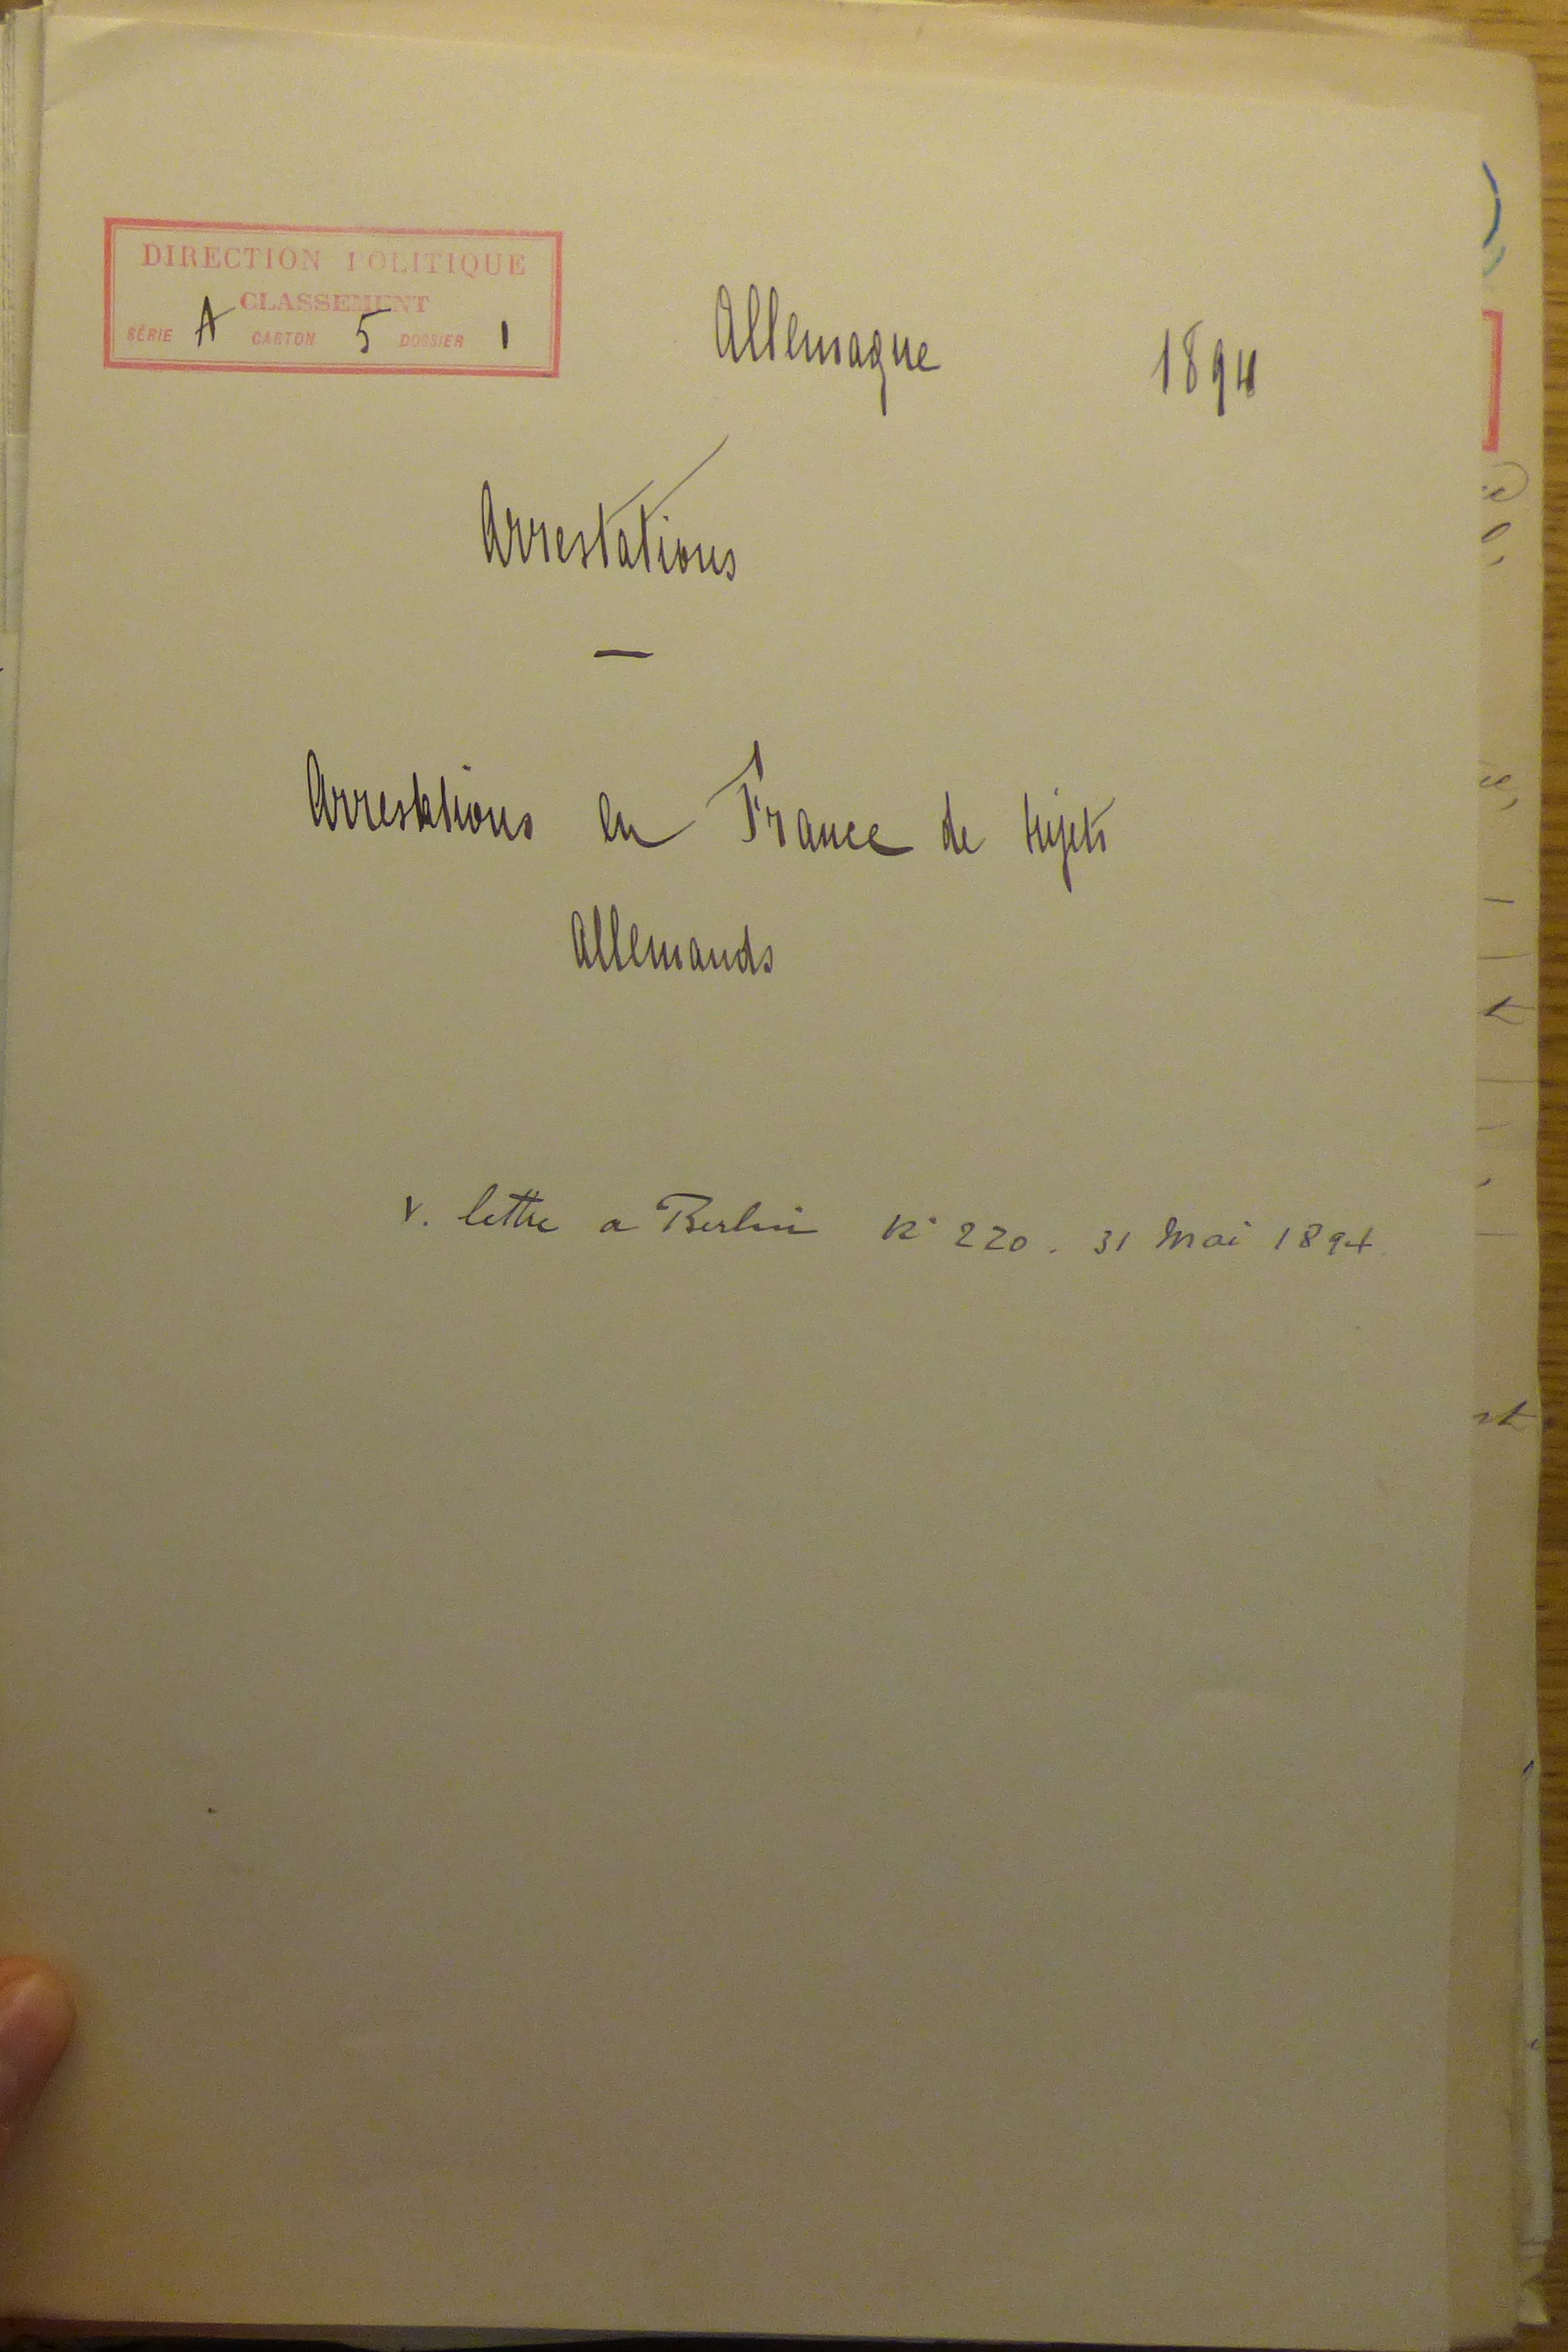 DIRECTION POLITIQUE
CLASSEMENT
SÉRIE A CARTON 5 DOSSIER 1
Allemagne 1894
Arrestations
—
Arrestations en France de sujets
Allemands
v. lettre a Berlin N° 220. 31 Mai 1894